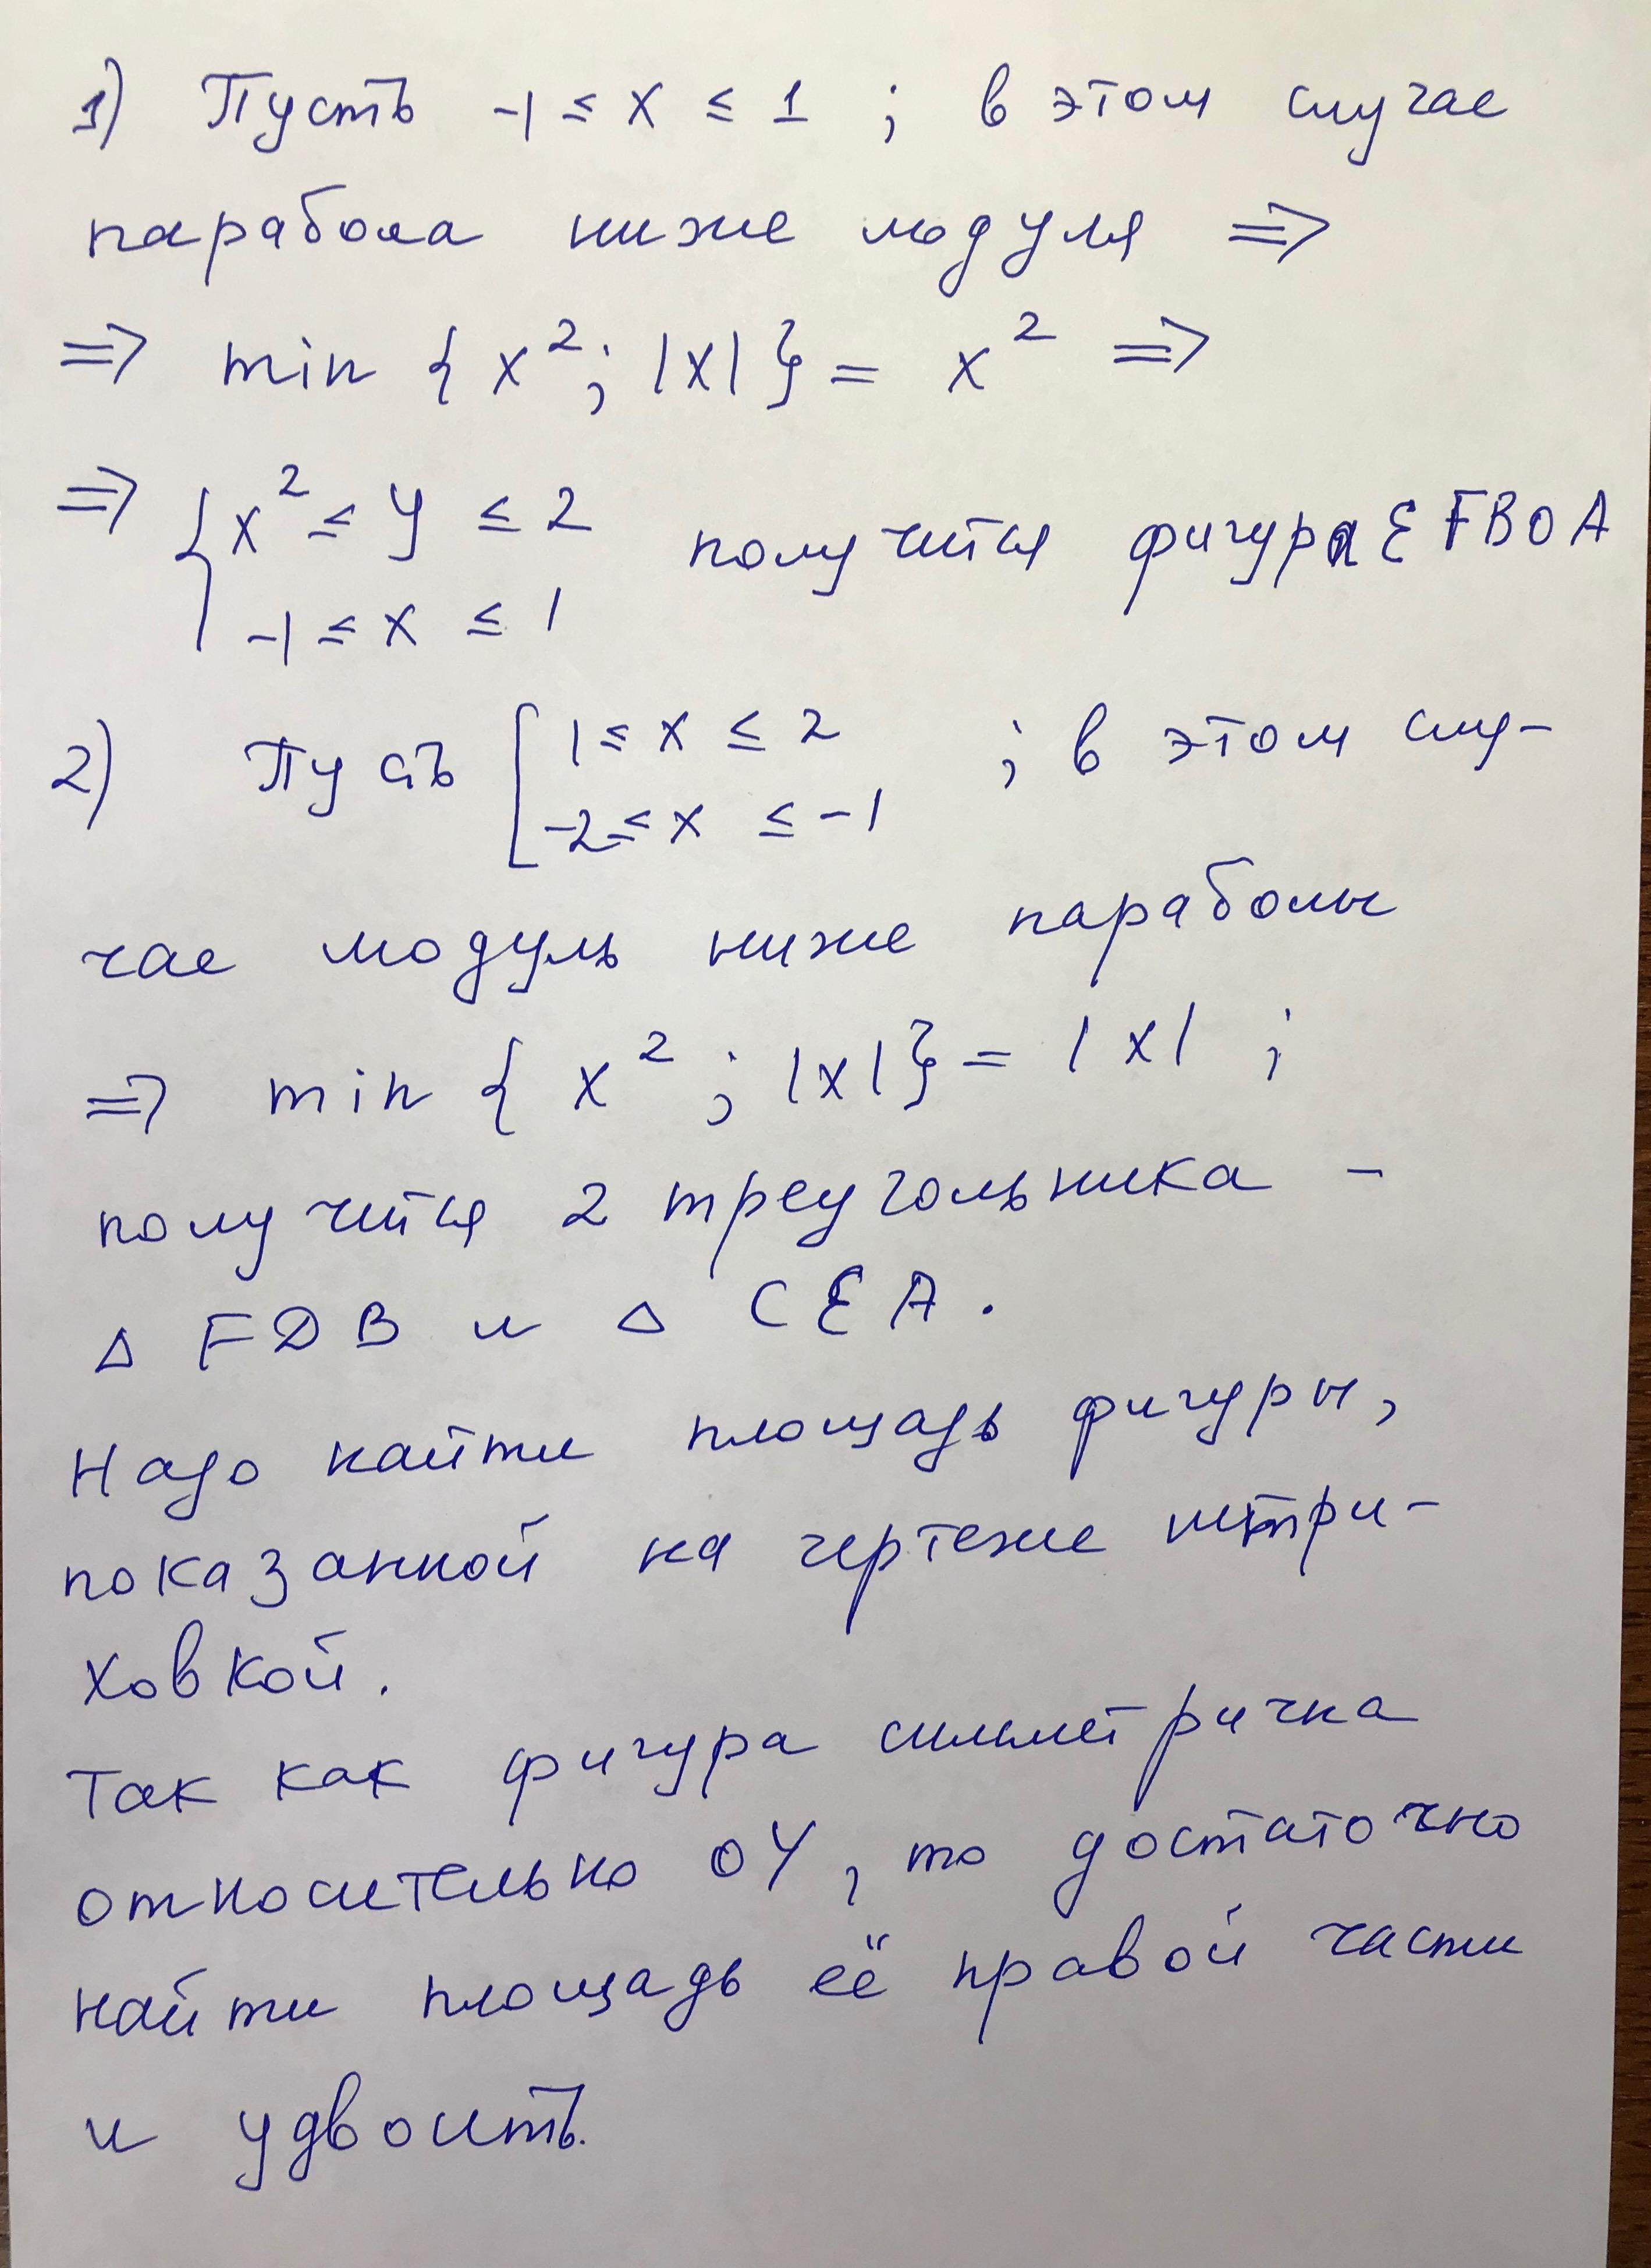 1) Пусть -1 ≤ x ≤ 1 ; в этом случае
парабола ниже модуля ⇒
⇒ min { x²; |x| } = x² ⇒
⇒ { x² ≤ y ≤ 2 получится фигура EFBOA
-1 ≤ x ≤ 1
2) Пусть [ 1 ≤ x ≤ 2 ; в этом слу-
-2 ≤ x ≤ -1
чае модуль ниже параболы
⇒ min { x² ; |x| } = |x| ;
получится 2 треугольника -
Δ FDB и Δ CEA.
Надо найти площадь фигуры,
показанной на чертеже штри-
ховкой.
Так как фигура симметрична
относительно OY, то достаточно
найти площадь её правой части
и удвоить.